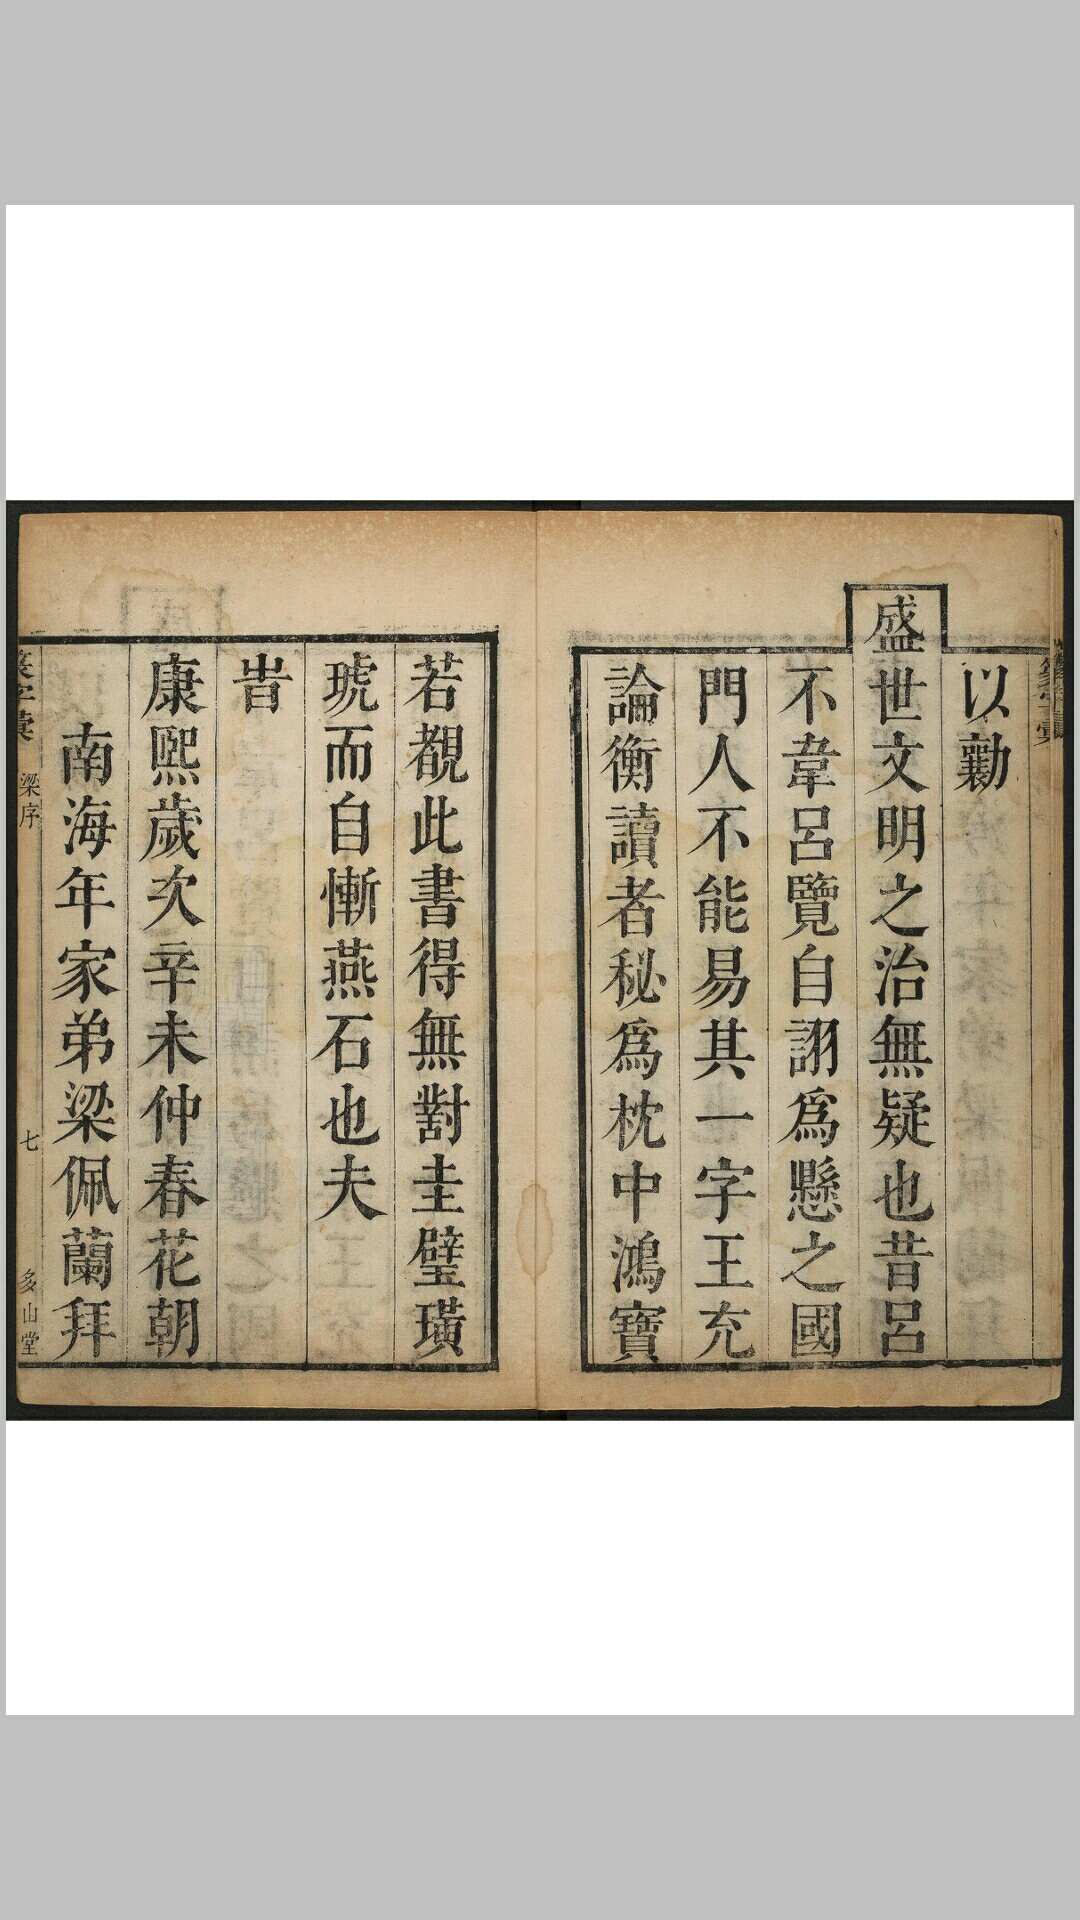 篆字彙
以勷
盛世文明之治無疑也昔呂
不韋呂覽自詡爲懸之國
門人不能易其一字王充
論衡讀者秘爲枕中鴻寶
若覩此書得無對圭璧璜
琥而自慚燕石也夫
旹
康熙歲次辛未仲春花朝
南海年家弟梁佩蘭拜
篆字彙 梁序 七 多山堂